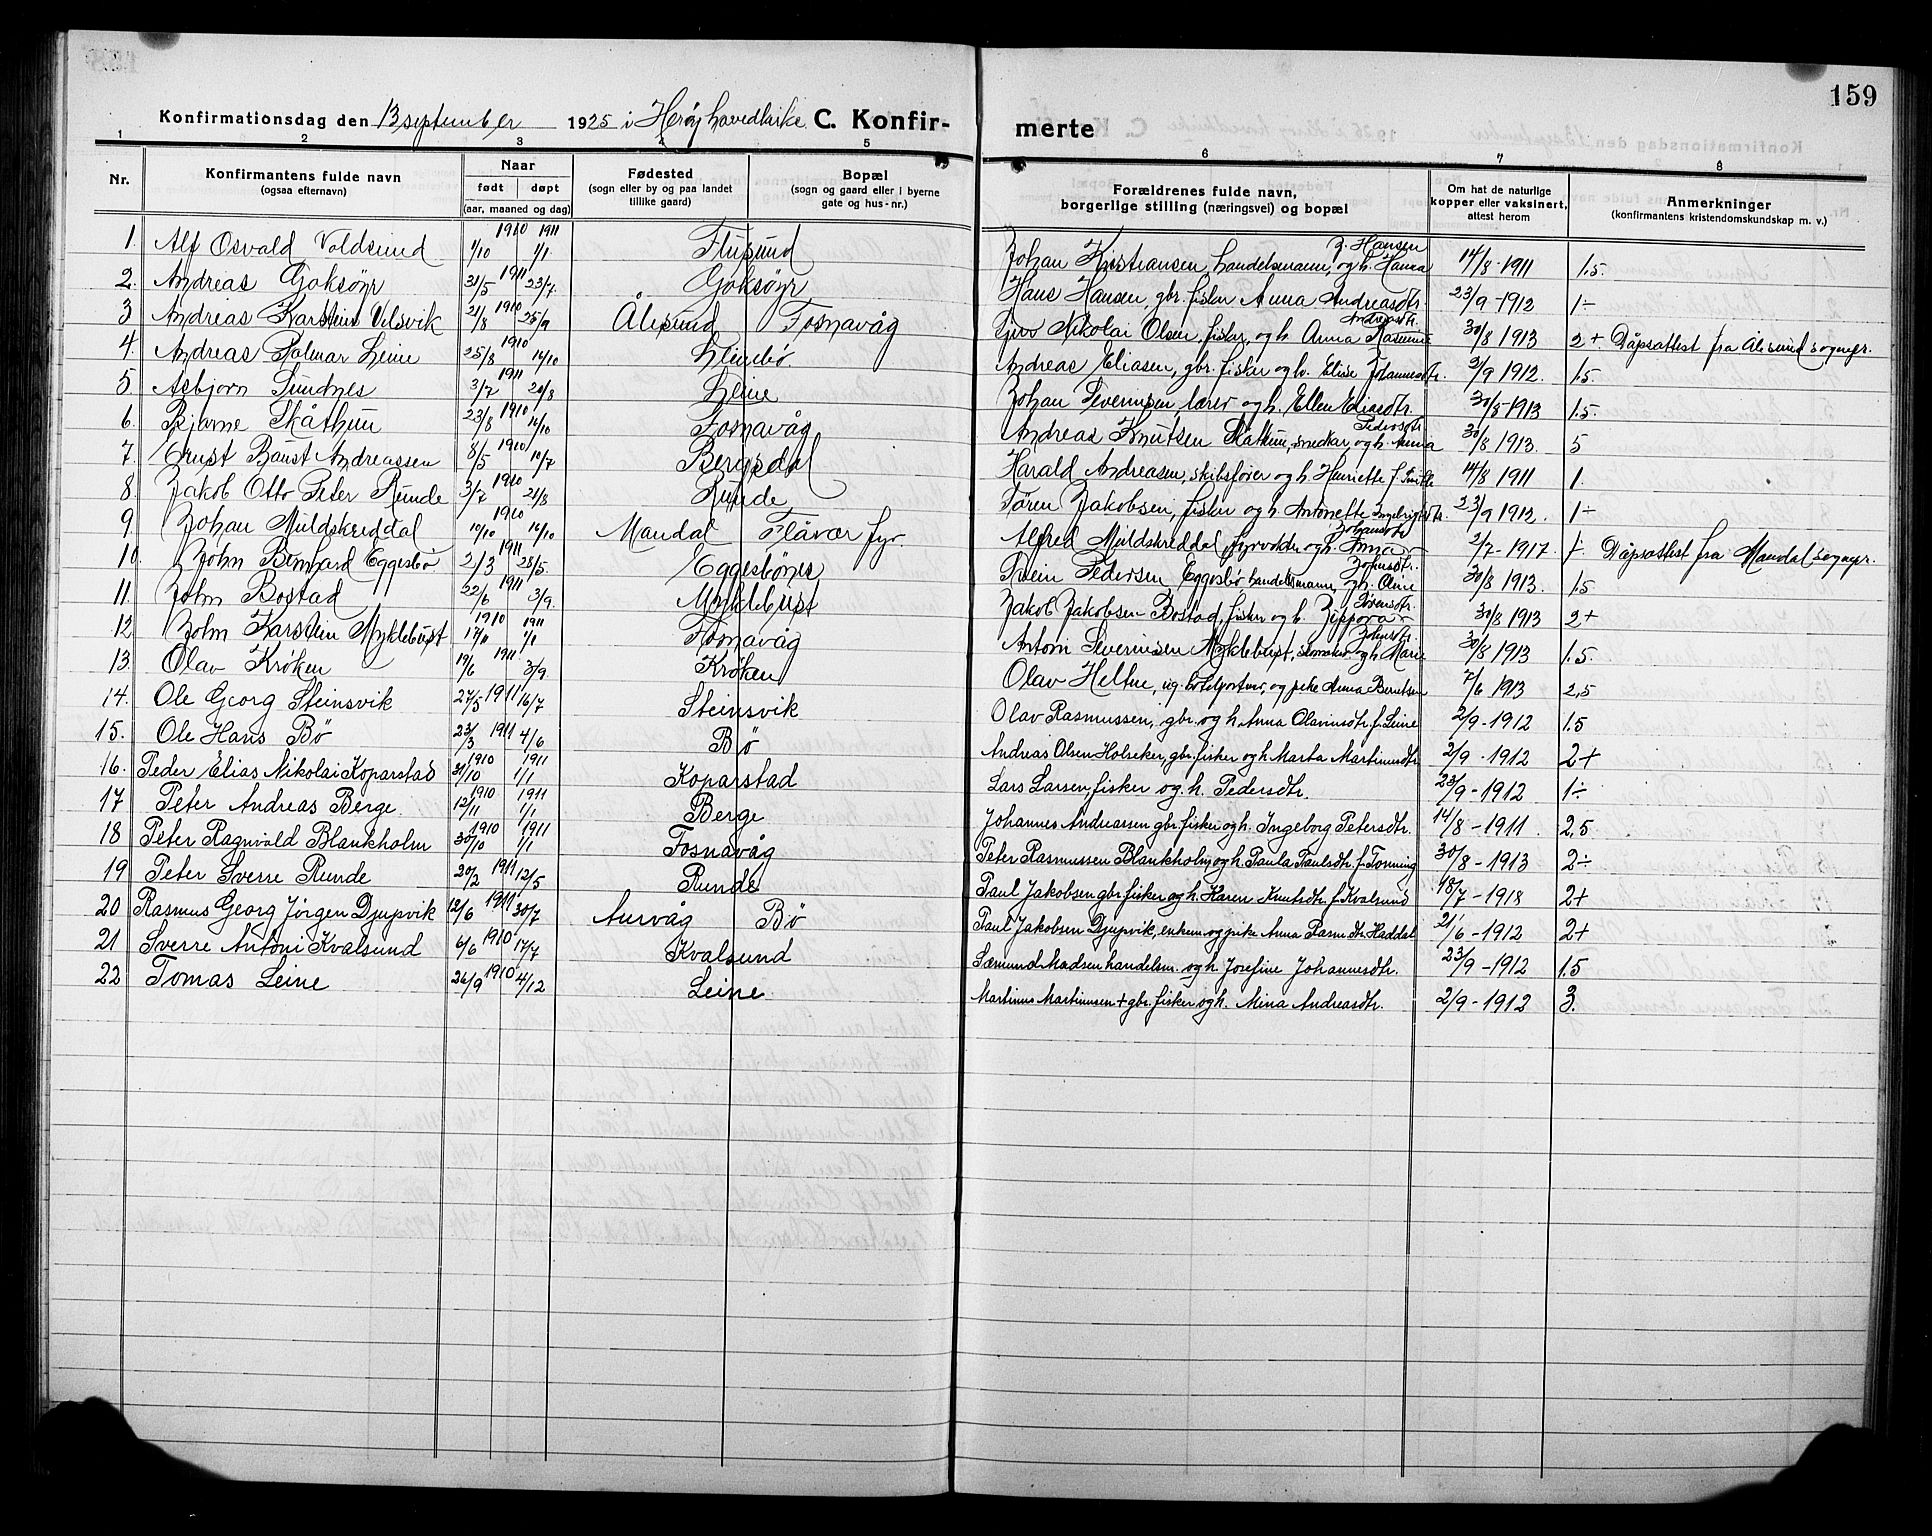 159
Konfirmationsdag den 13 september 1925 i Herøy hovedkirke. C. Konfir- merte
1 2 3 4 5 6 7 8
Nr. Konfirmantens fulde navn (ogsaa efternavn) Naar født døpt (aar, maaned og dag) Fødested (sogn eller by og paa landet tillike gaard) Bopæl (sogn og gaard eller i byerne gate og hus-nr.) Forældrenes fulde navn, borgerlige stilling (næringsvei) og bopæl Om hat de naturlige kopper eller vaksinert, attest herom Anmerkninger (konfirmantens kristendomskundskap m. v.)
1. Alf Osvald Voldsund 1/10 1910 1/1 1911 Flusund Johan Kristiansen, handelsmann, og h. Hanna J. Hansen 14/8 1911 1.5.
2. Andreas Goksøyr 31/5 1911 23/7 Goksøyr Hans Hansen, gbr. fisker Anna Andreasdtr. 23/9 - 1912 1 -
3 Andreas Karstein Velsvik 21/8 1910 25/9 Ålesund Fosnavåg Nikolai Olsen, fisker, og h. Anna Rasmine Andreasdtr. 30/8 1913 2+. Dåpsattest fra Ålesund sognepr.
4. Andreas Halmar Leine 25/8 1910 16/10 Leinebø. Andreas Eliasen, gbr. fisker og h. Elise Johannesdtr. 2/9 1912. 1.5
5 Asbjørn Sundnes 3/7 1911 20/8 Leine Johan Severinsen, lærer, og h. Ellen Eliasdtr. 30/8 1913 1.5.
6. Bjarne Skåthun 23/8 1910 16/10 Fosnavåg Andreas Knutsen Skåthun, snedker, og h. Anna Pedersdtr. 30/8 1913. 5
7. Ernst Andreassen 8/5 1910 10/7 Bergsdal Harald Andreasen, skibsfører og h. Henriette f. 14/8 1911 1.
8 Jakob Otto Peter Runde 3/7 1910 21/8 Runde Søren Jakobsen, fisker og h. Antonette 23/9 1912. 1 -
9 Johan Muldskreddal 10/10 1910 16/10 Mandal Flåvær fyr. Alfred Muldskreddal, fyrvokter og h. Anna Johansdtr. 2/7 - 1917. 1. Dåpsattest fra Mandal sognepr.
10. John Bernhard Eggesbø 2/3 1911 28/5. Eggesbønes Svein Pedersen Eggesbø handelsmann, og h. Oline Johnsdtr. 30/8 1913. 1.5
11. John Bostad 22/6 1911 3/9. Myklebust Jakob Jakobsen Bostad, fisker og h. Zippora Sørensdtr. 30/8 1913 2+
12 John Karstein Myklebust 17/11 1910 1/1 1911 Fosnavåg Antoni Severinsen Myklebust, og h. Marie Johnsdtr. 30/8 1913 1.5.
13. Olav Krøken 19/6 1911 3/9. Krøken Olav Heltne, ug. hotelportner, og pike Anna Berntsen 7/6 1913 2,5
14. Ole Georg Steinsvik 27/5 1911 16/7 Steinsvik Olav Rasmussen, gbr. og h. Anna Olavinsdtr. f. Leine 2/9 - 1912 1.5
15. Ole Hans Bø 23/3 1911 4/6 Bø Andreas Olsen Holseker, gbr. fisker og h. Marta Martinusdtr 2/9 - 1912 2+
16. Peder Elias Nikolai Koparstad 31/10 1910 1/1 1911 Koparstad Lars Larsen, fisker og h. Pedersdtr. 23/9 - 1912 1 ÷
17 Peter Andreas Berge. 12/11 1910 1/1 1911 Berge Johannes Andreassen gbr. fisker og h. Ingeborg Petersdtr. 14/8 - 1911 2.5
18 Peter Ragnvald Blankholm 30/10 1910 1/1 1911 Fosnavåg Peter Rasmussen Blankholm, og h. Paula Paulsdtr. f. Tonning 30/8 - 1913 2 ÷
19 Peter Sverre Runde 20/2 1911 12/5 Runde Paul Jakobsen gbr. fisker og h. Karen Knutsdtr. f. Kvalsund 18/7 - 1918 2+
20 Rasmus Georg Jørgen Djupvik 12/6 1911 30/7 Aurvåg Bø Paul Jakobsen Djupvik, enkem. og pike Anna Rasm. dtr. Haddal 21/6 - 1912 2+
21 Sverre Antoni Kvalsund 6/6 1910 17/7 Kvalsund Sæmund Madsen handelsm. og h. Josefine Johannesdtr. 23/9 - 1912 1.5
22 Tomas Leine 26/9 1910 4/12 Leine Martinus Martinussen + gbr. fisker og h. Mina Andreasdtr. 2/9 - 1912 3.